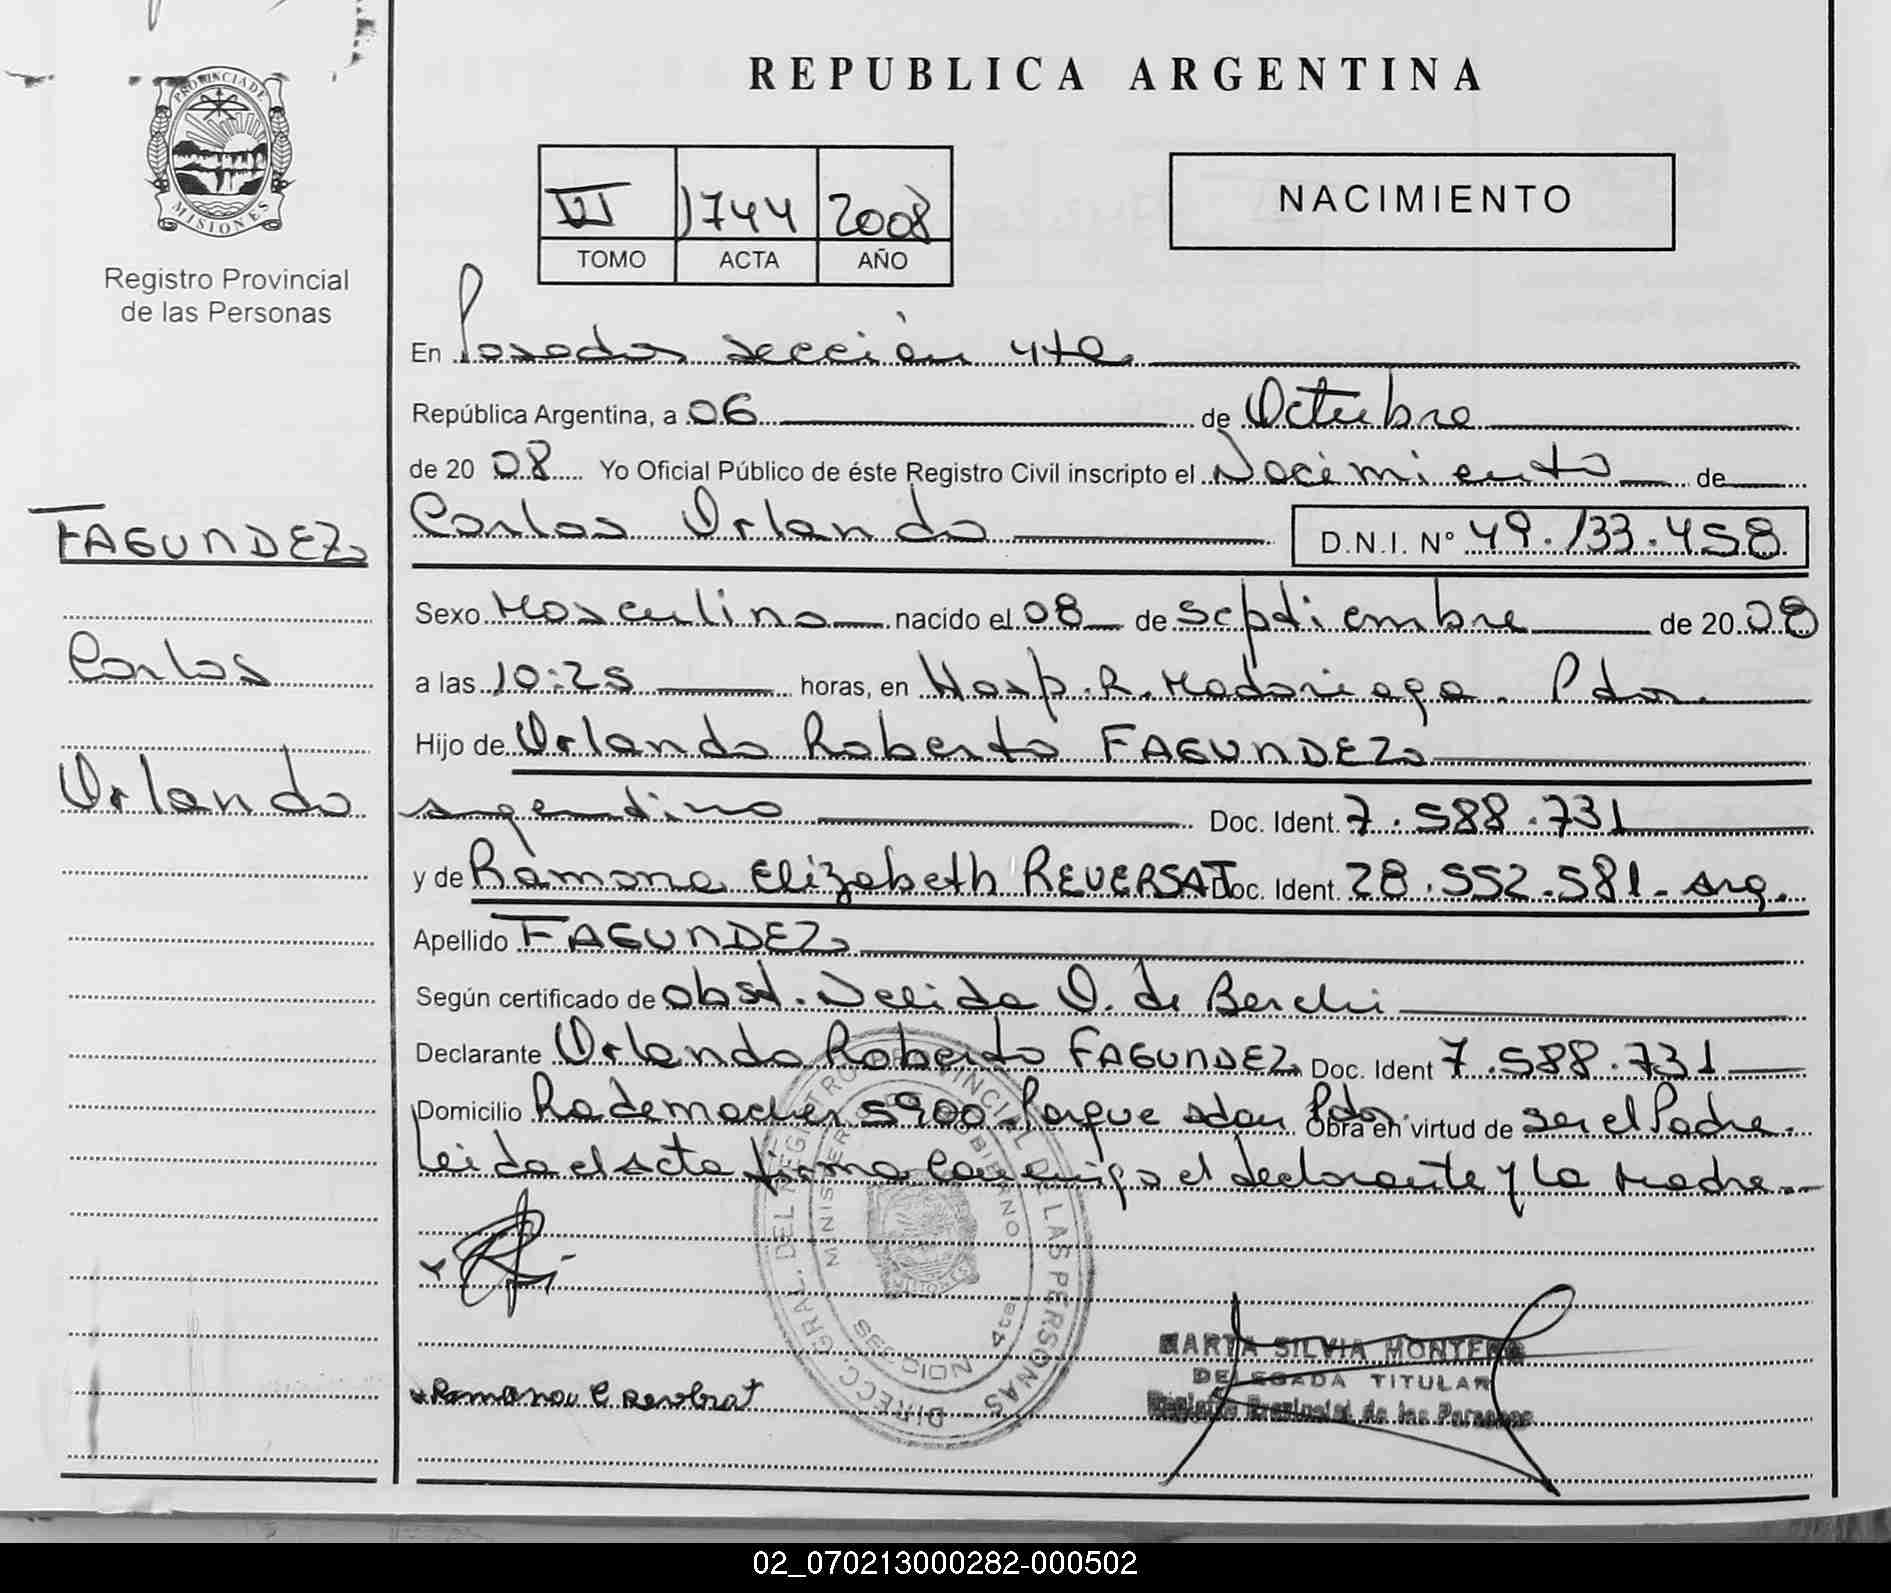 REPUBLICA ARGENTINA
PROVINCIA DE MISIONES
Registro Provincial
de las Personas
1744 2008
TOMO ACTA AÑO
NACIMIENTO
En Posadas sección 4ta.
República Argentina, a 06 de Octubre
de 20 08 Yo Oficial Público de éste Registro Civil inscripto el Nacimiento de
Carlos Orlando D.N.I. N° 49.133.458
FAGUNDEZ
Carlos
Orlando
Sexo Masculino nacido el 08 de septiembre de 20 08
a las 10:25 horas, en Hosp. R. Madariaga. Pdas.
Hijo de Orlando Roberto FAGUNDEZ
argentino Doc. Ident. 7.588.731
y de Ramona Elizabeth REVERSAT Doc. Ident. 28.552.581 - arg.
Apellido FAGUNDEZ
Según certificado de obst. Nelida O. de Berchi
Declarante Orlando Roberto FAGUNDEZ Doc. Ident 7.588.731
Domicilio Rademacher 5900 - Parque Adam Pdas. Obra en virtud de ser el Padre.
Leida el acta firma conmigo el declarante y la Madre.
DIRECC. GRAL. DEL REGISTRO PROVINCIAL DE LAS PERSONAS
MINISTERIO DE GOBIERNO
SECCION 4ta
Ramona E Reversat
MARTA SILVIA MONTERO
DELEGADA TITULAR
Registro Provincial de las Personas
02_070213000282-000502